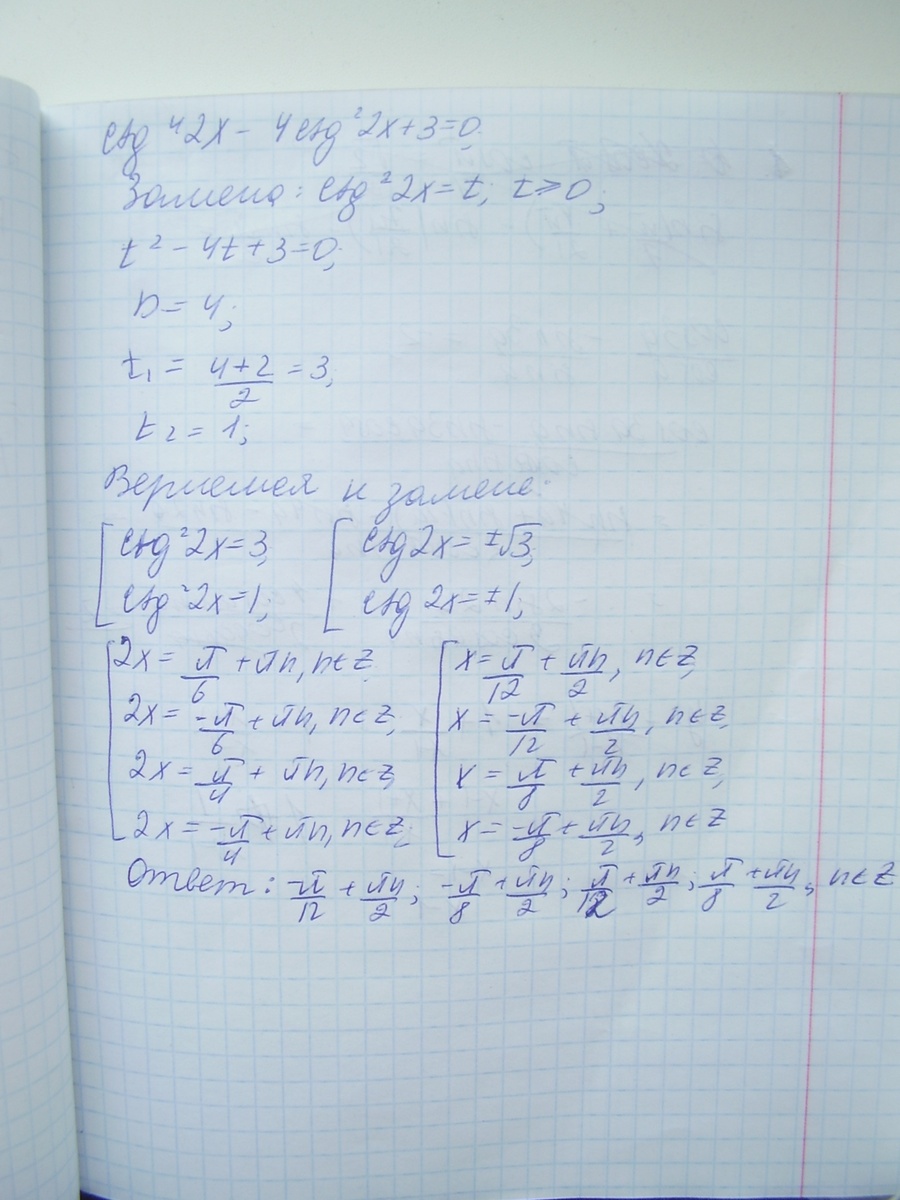 ctg⁴2x - 4ctg²2x+3=0;
Замена: ctg²2x=t; t≥0;
t²-4t+3=0;
D=4;
t₁ = (4+2)/2 = 3;
t₂ = 1;
Вернемся к замене:
[ ctg²2x=3; [ ctg2x=±√3;
ctg²2x=1; ctg 2x=±1;
[ 2x= π/6 + πn, n∈Z [ x= π/12 + πn/2, n∈Z;
2x= -π/6 + πn, n∈Z; x= -π/12 + πn/2, n∈Z;
2x= π/4 + πn, n∈Z; x= π/8 + πn/2, n∈Z;
2x= -π/4 + πn, n∈Z; x= -π/8 + πn/2, n∈Z
Ответ: -π/12 + πn/2; -π/8 + πn/2; π/12 + πn/2; π/8 + πn/2, n∈Z